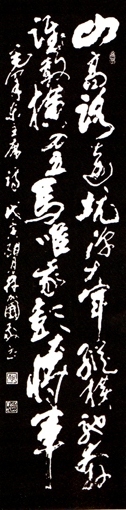 山高路遠坑深大軍縱橫馳奔
誰敢橫刀立馬唯我彭大將軍
毛澤東主席詩 戊寅